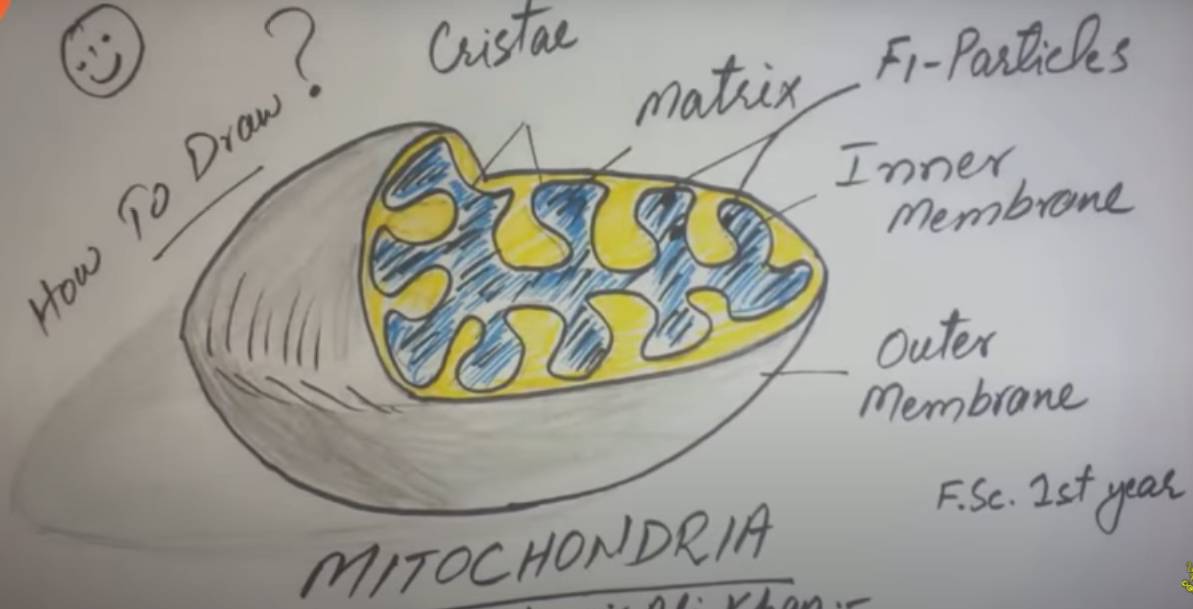 How To Draw?
Cristae
Matrix
F1-Particles
Inner
Membrane
Outer
Membrane
F.Sc. 1st year
MITOCHONDRIA